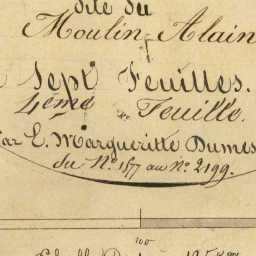 dite du
Moulin Alain
Sept Feuilles.
4ème Feuille.
Par E. Margueritte Dumes
du N.° 1577 au N.° 2199.
100